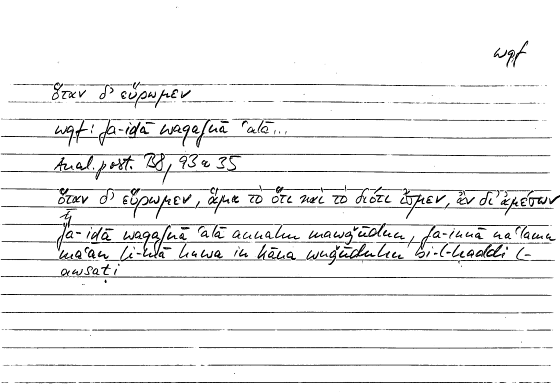 wqf
ὅταν δ' εὕρωμεν
wqf: fa-iḏā waqafnā ʿalā...
Anal. post. B8, 93 a 35
ὅταν δ' εὕρωμεν, ἅμα τὸ ὅτι καὶ τὸ διότι ἴσμεν, ἂν δι' ἀμέσων
ᾖ
fa-iḏā waqafnā ʿalā annahu mawǧūdun, fa-innā naʿlamu
maʿan li-mā huwa in kāna wuǧūduhu bi-l-ḥaddi l-
awsaṭi